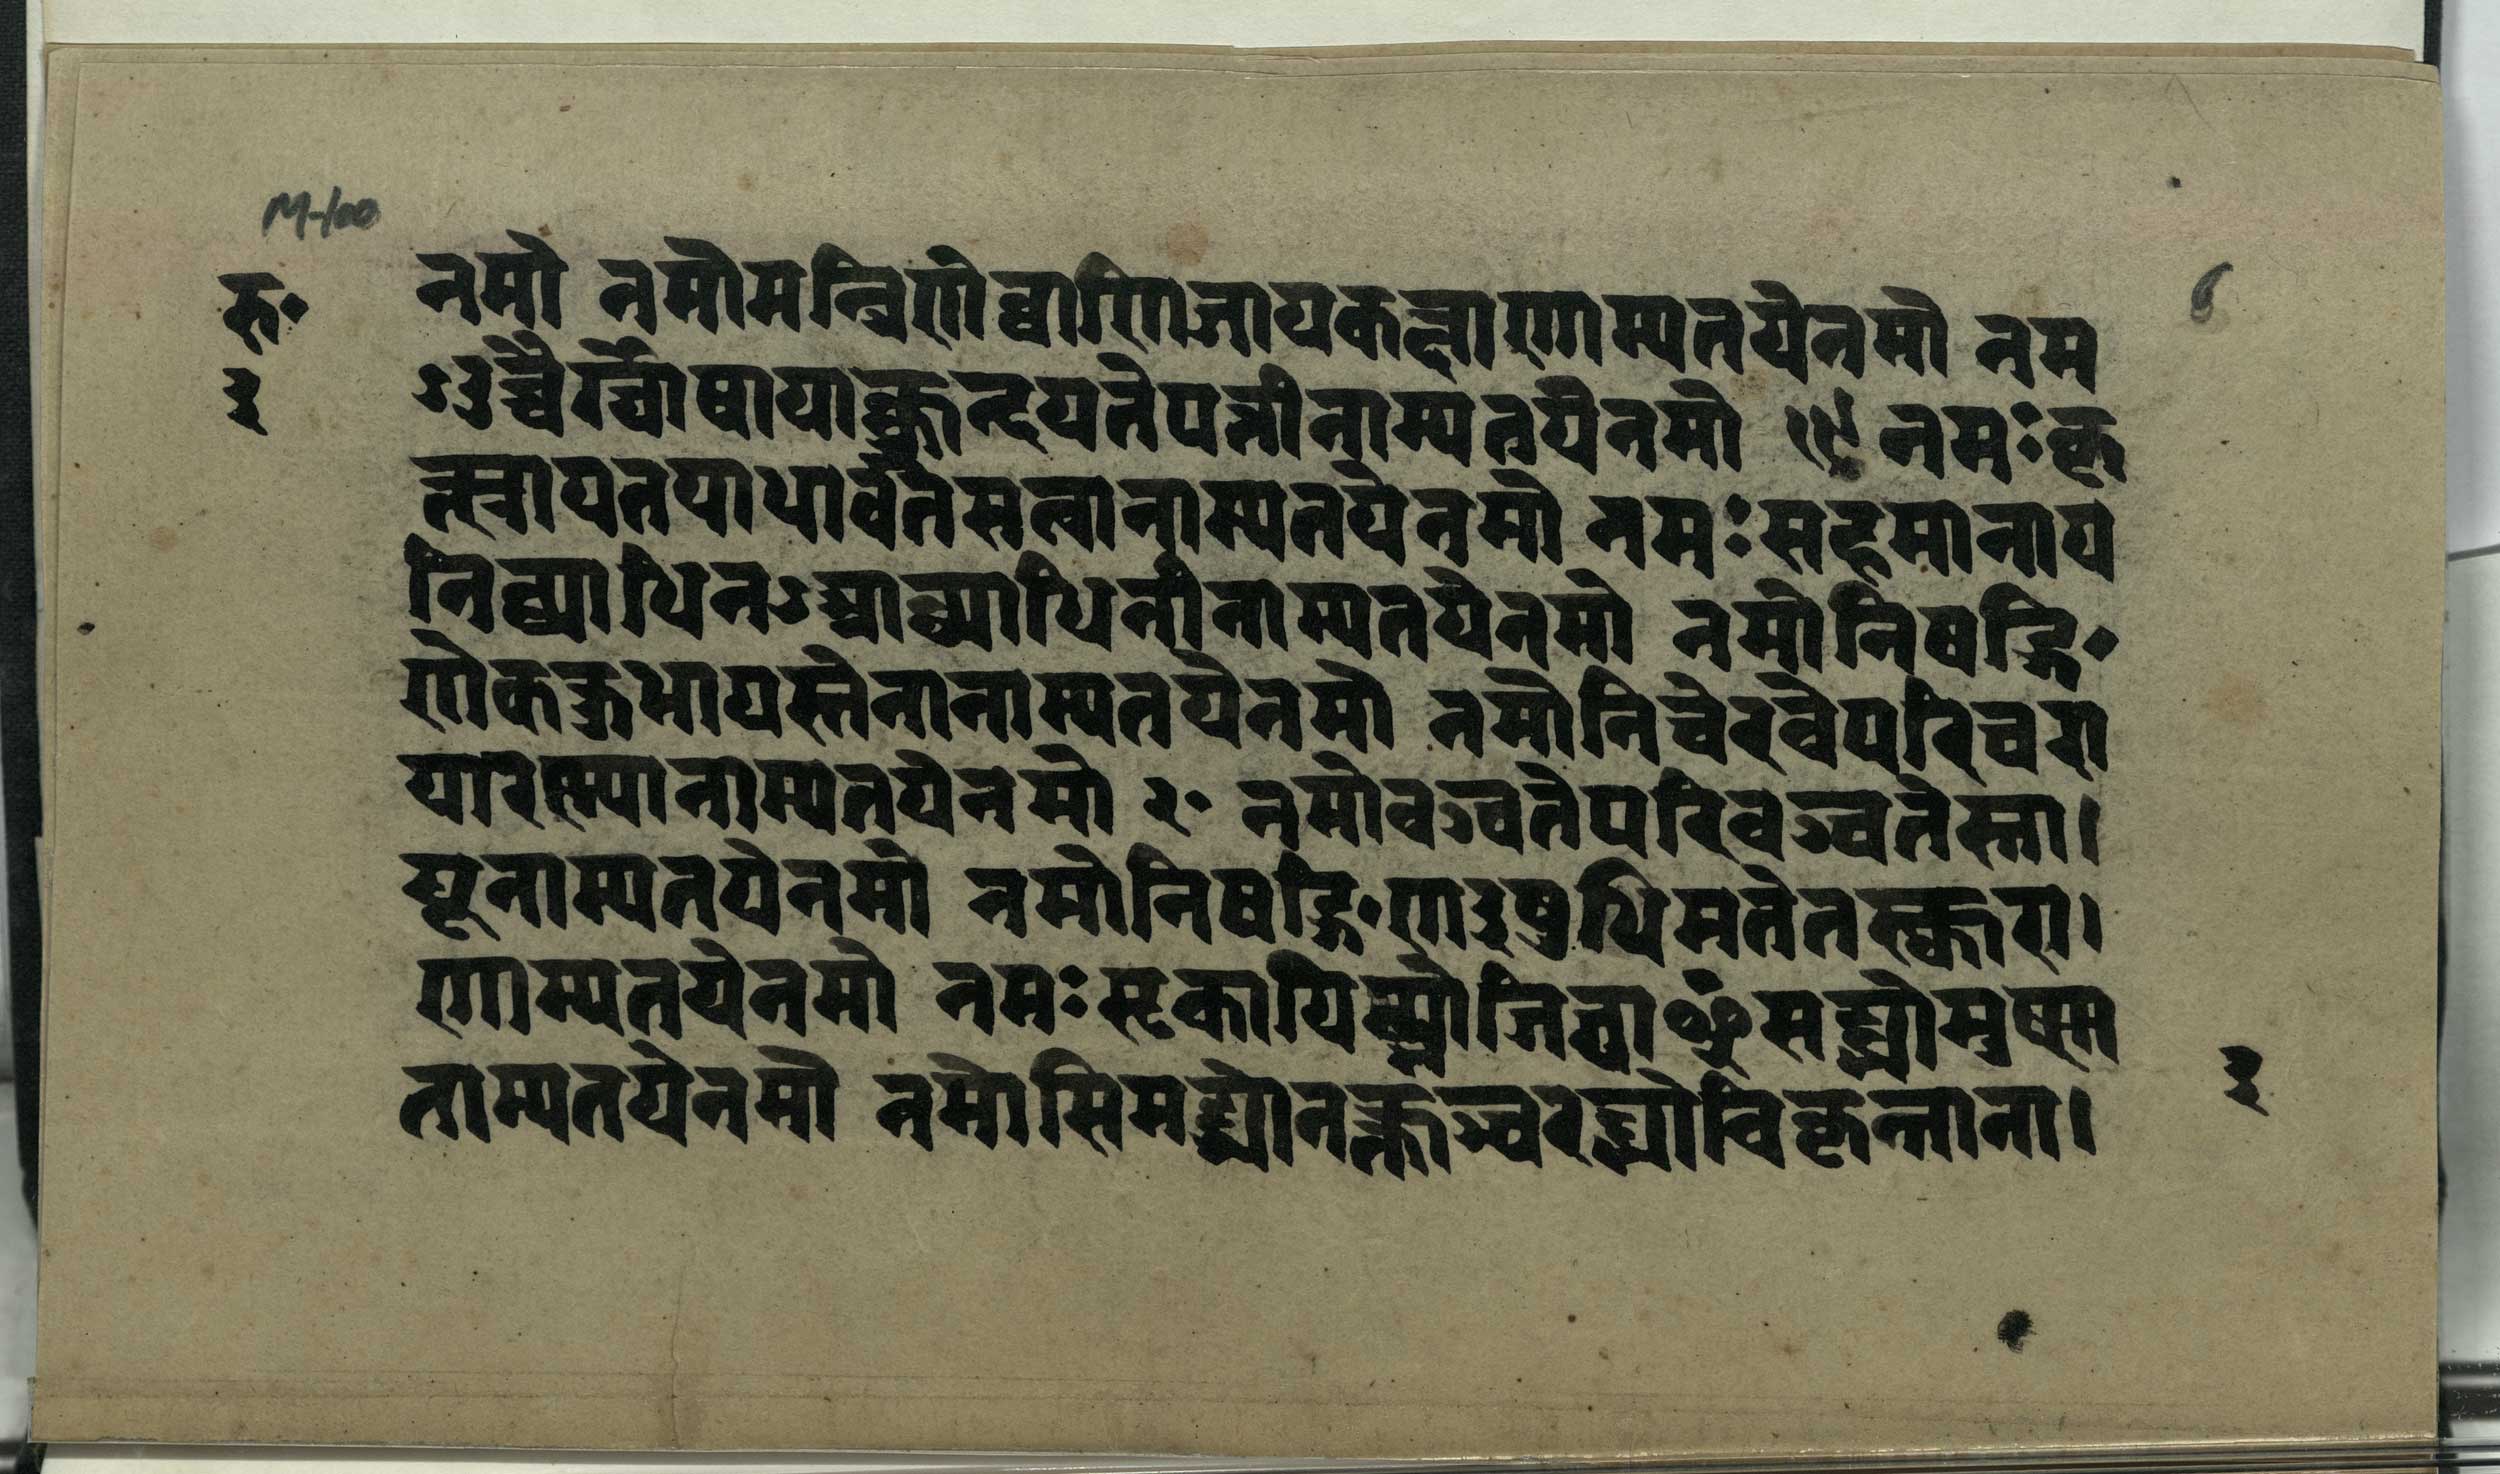 M-100
रु॰
३
नमो नमोमन्त्रिणेव्वाणिजायकक्षाणाम्पतयेनमो नम
ऽउच्चैर्घोषायाक्क्रन्दयतेपत्तीनाम्पतयेनमो १९ नमःकृ
त्स्नायतयाधावतेसत्वानाम्पतयेनमो नमःसहमानाय
निव्याधिनऽआव्याधिनीनाम्पतयेनमो नमोनिषङ्गि॰
णेककुभायस्तेनानाम्पतयेनमो नमोनिचेरवेपरिचरा
यारण्यानाम्पतयेनमो २॰ नमोवञ्चतेपरिवञ्चतेस्ता।
यूनाम्पतयेनमो नमोनिषङ्गि॰णऽइषुधिमतेतस्क्करा।
णाम्पतयेनमो नमःसृकायिब्भ्योजिघाꣳसद्भ्योमुष्ण
ताम्पतयेनमो नमोसिमद्भ्योनक्तञ्चरद्भ्योविकृन्ताना।
6
३